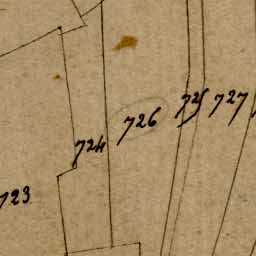 723
724
726
725
727